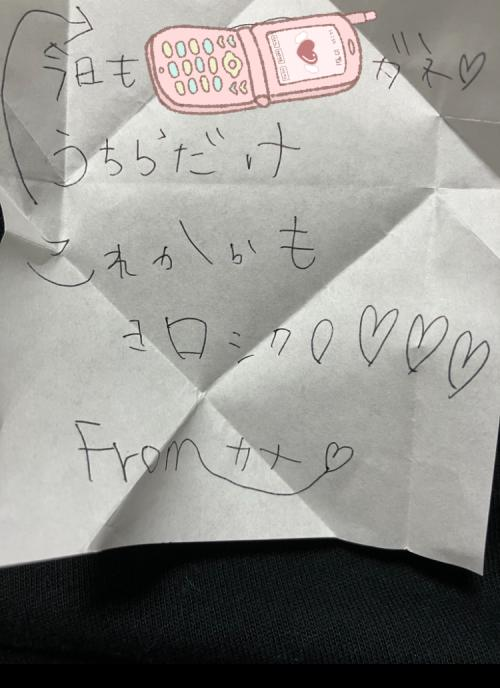 今日も ガネ♡
うちらだけ
これからも
ヨロシク♡♡♡
From カナ♡